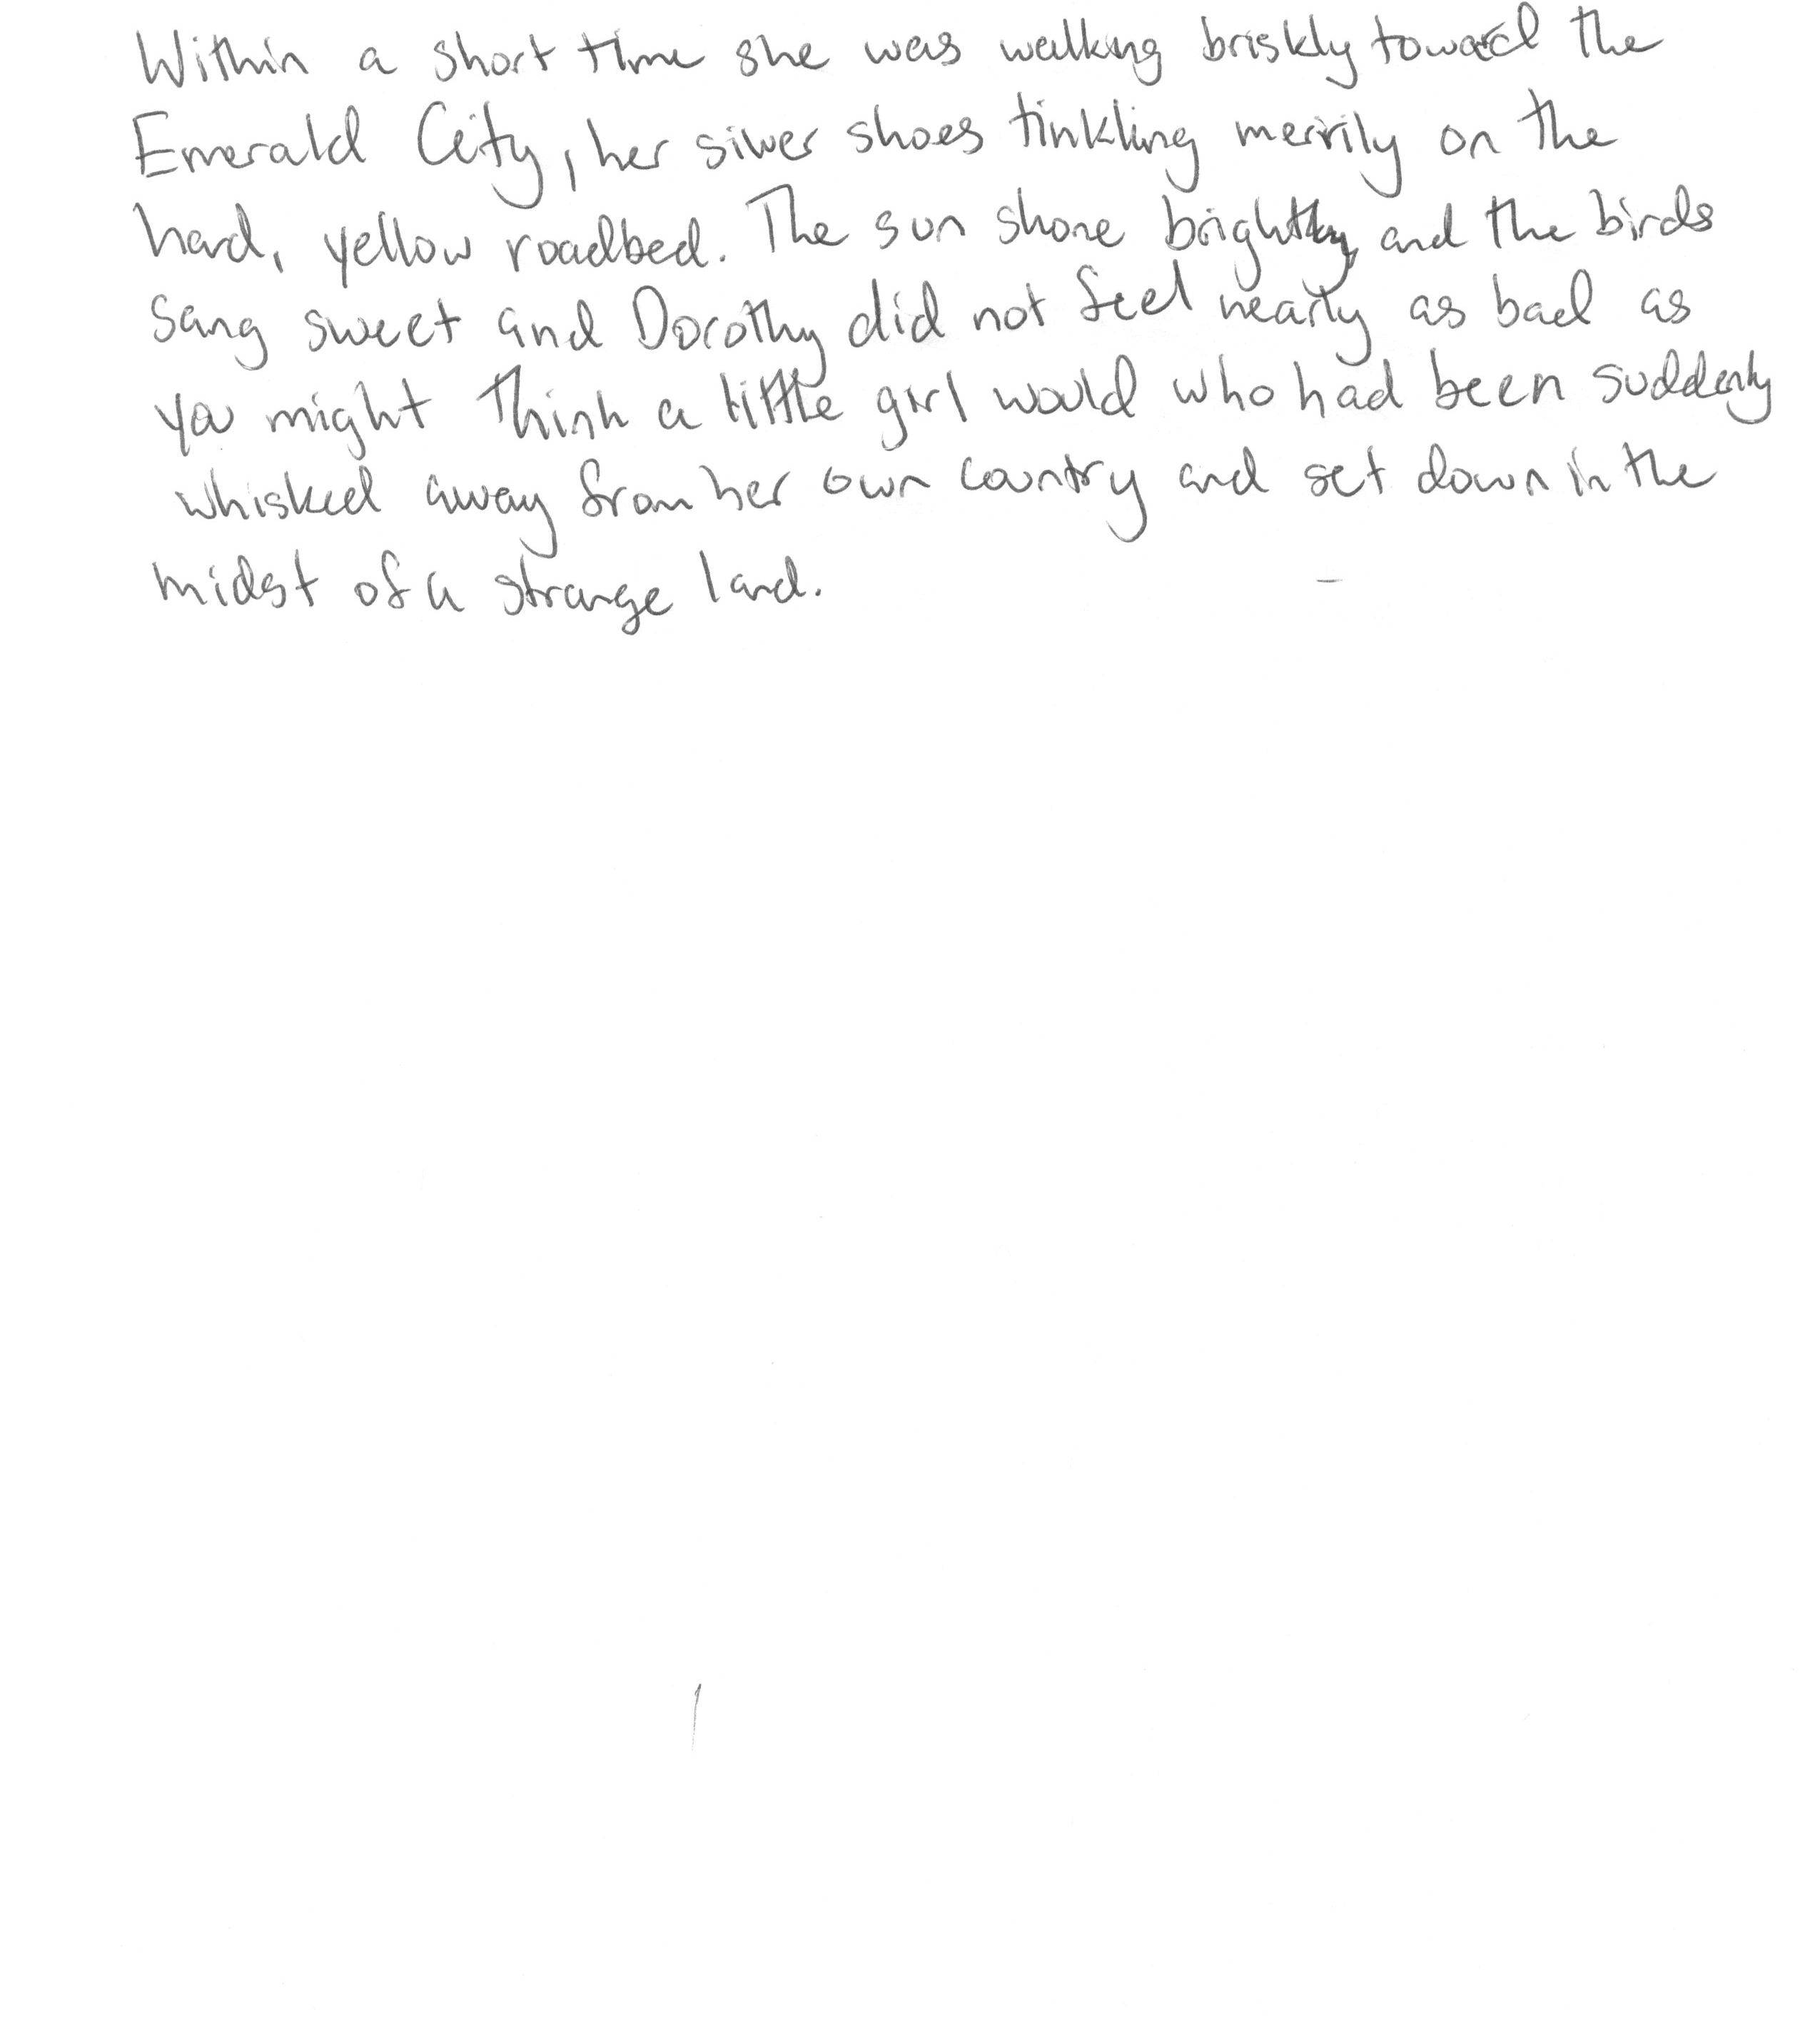 Within a short time she was walking briskly toward the
Emerald City, her silver shoes tinkling merrily on the
hard, yellow roadbed. The sun shone brightly and the birds
sang sweet and Dorothy did not feel nearly as bad as
you might think a little girl would who had been suddenly
whisked away from her own country and set down in the
midst of a strange land.